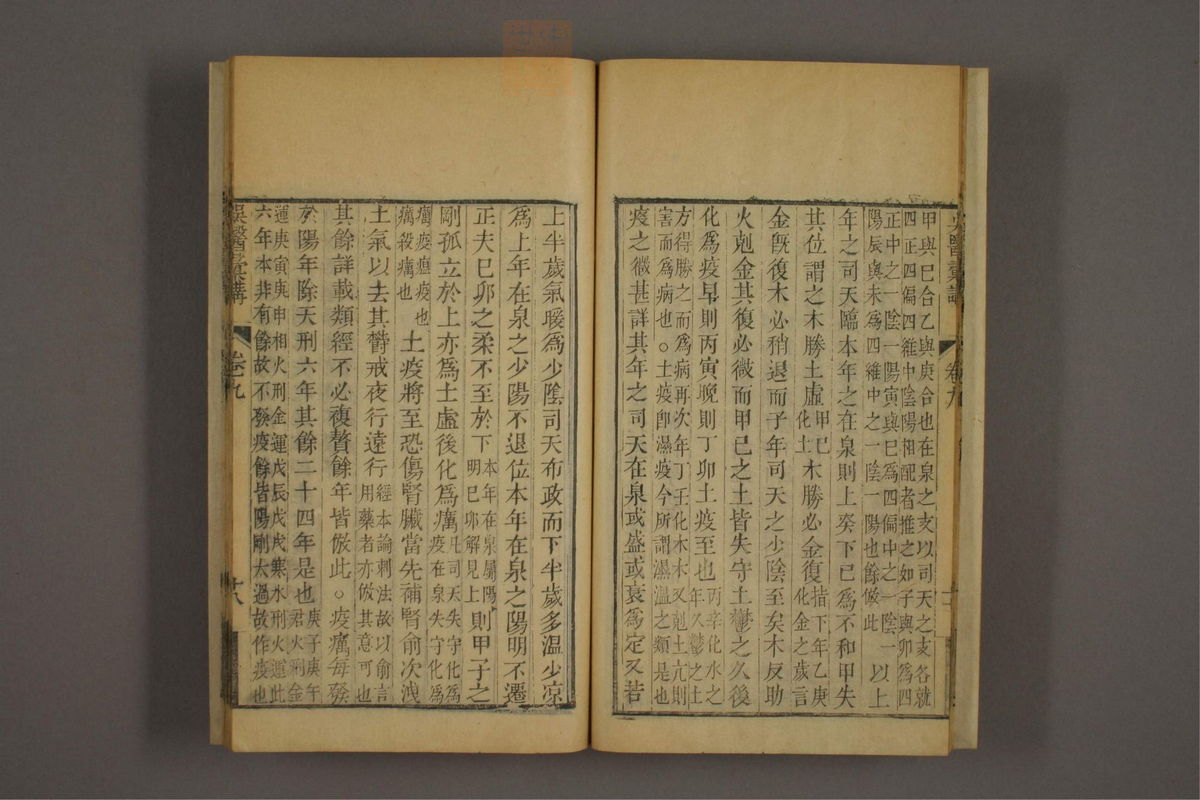 甲與巳合乙與庚合也在泉之支以司天之支各就
四正四偏四維中陰陽相配者推之如子與卯爲四
正中之一陰一陽寅與巳爲四偏中之一陰一
陽辰與未爲四維中之一陰一陽也餘倣此
以上
年之司天臨本年之在泉則上癸下巳爲不和甲失
其位謂之木勝土虛
甲巳
化土
木勝必金復
指下年乙庚
化金之歲言
金旣復木必稍退而子年司天之少陰至矣木反助
火剋金其復必微而甲巳之土皆失守土鬱之久後
化爲疫早則丙寅晚則丁卯土疫至也
丙辛化水之
年久鬱之土
方得勝之而爲病再次年丁壬化木木又剋土亢則
害而爲病也○土疫卽濕疫今所謂濕溫之類是也
疫之微甚詳其年之司天在泉或盛或衰爲定又若
吳醫彙講
卷九
上半歲氣暖爲少陰司天布政而下半歲多溫少凉
爲上年在泉之少陽不退位本年在泉之陽明不遷
正夫巳卯之柔不至於下
本年在泉屬陽
明巳卯解見上
則甲子之
剛孤立於上亦爲土虛後化爲癘
凡司天失守化爲
疫在泉失守化爲
癘疫瘟疫也
癘殺癘也
土疫將至恐傷腎臟當先補腎俞次洩
土氣以去其鬱戒夜行遠行
經本論刺法故以俞言
用藥者亦倣其意可也
其餘詳載類經不必複贅餘年皆倣此○疫癘每發
於陽年除天刑六年其餘二十四年是也
庚子庚午
君火刑金
運庚寅庚申相火刑金運戊辰戊戌寒水刑火運此
六年本非有餘故不發疫餘皆陽剛太過故作疫也
吳醫彙講
卷九
十八